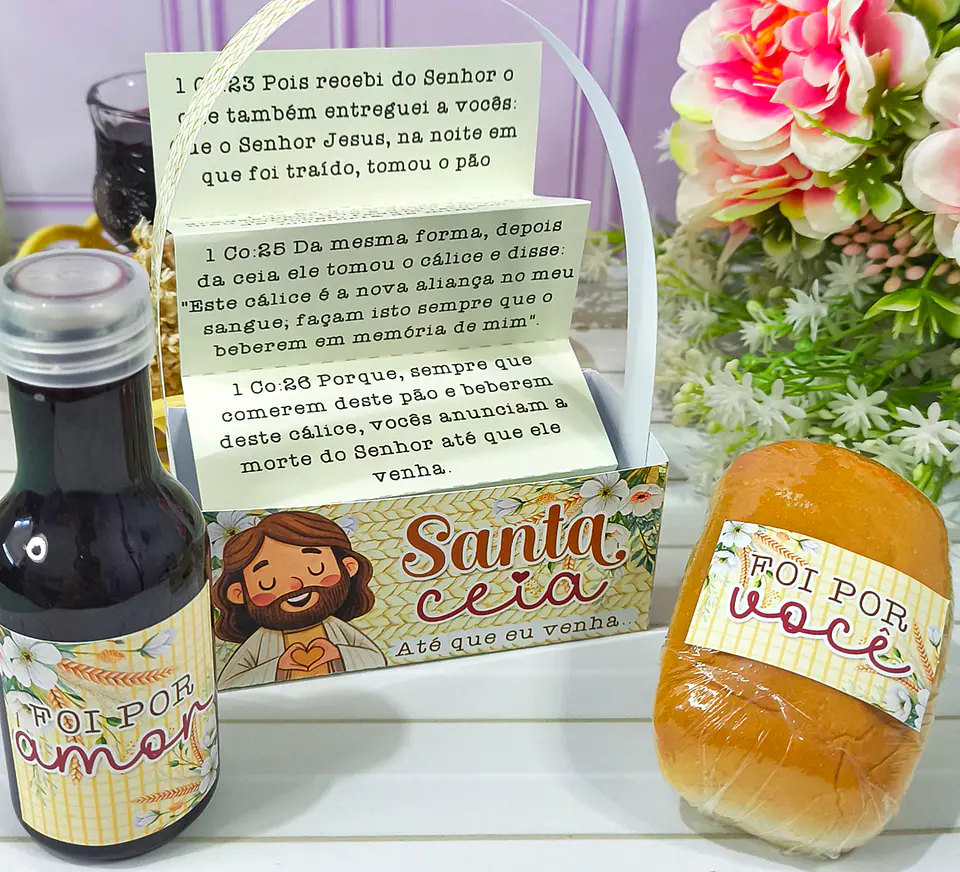 1 23 Pois recebi do Senhor o
também entreguei a vocês:
o Senhor Jesus, na noite em
que foi traído, tomou o pão
1 Co:25 Da mesma forma, depois
da ceia ele tomou o cálice e disse:
"Este cálice é a nova aliança no meu
sangue; façam isto sempre que o
beberem em memória de mim".
1 Co:26 Porque, sempre que
comerem deste pão e beberem
deste cálice, vocês anunciam a
morte do Senhor até que ele
venha.
Santa
ceia
Até que eu venha...
FOI POR
amor
FOI POR
você